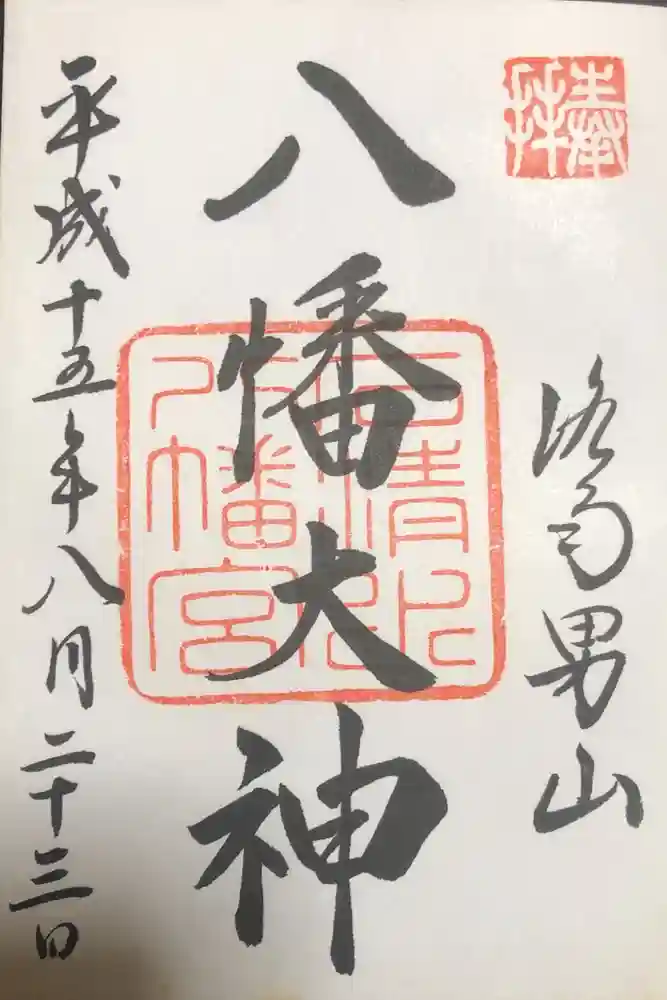 奉拝
洛南男山
八幡大神
石清水八幡宮印
平成十五年八月二十三日